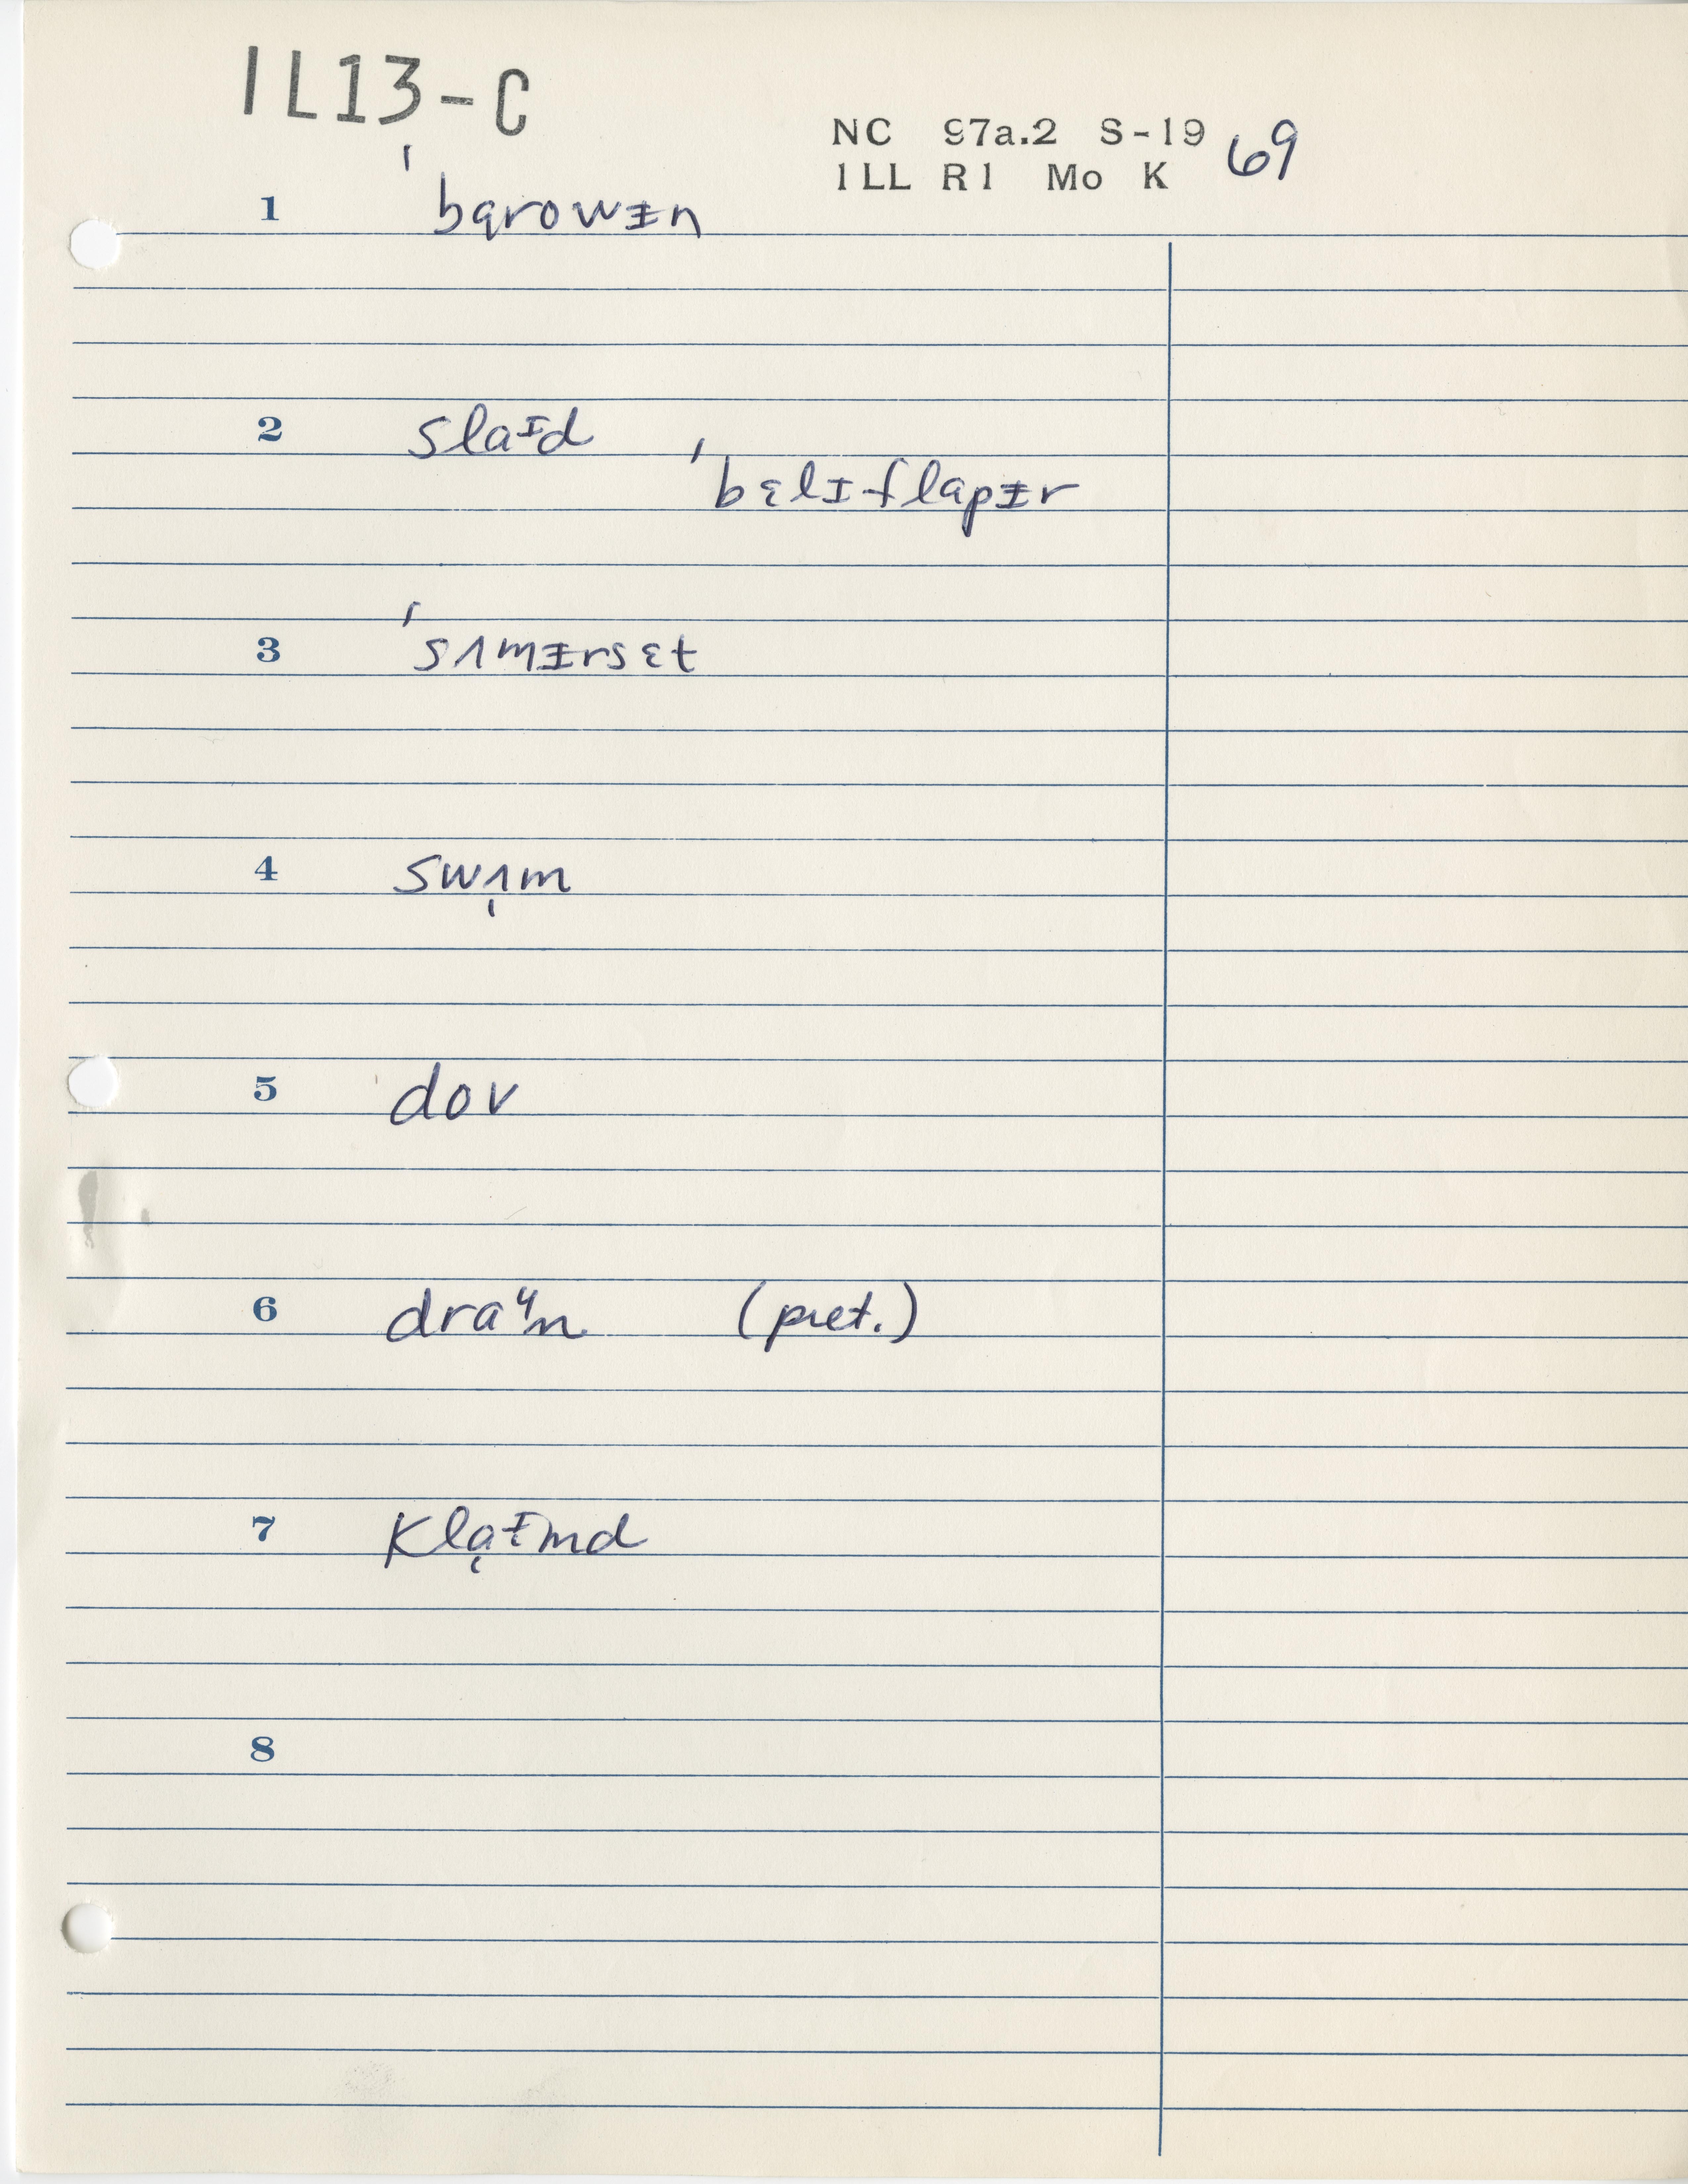 1L13-C
NC 97a.2 S-19 69
1LL R1 Mo K
1 ˈbɑrowᵻn
2 slaᶦd
ˈbɛlɪflapᵻr
3 ˈsʌmᵻrsɛt
4 swʌ̩m
5 dov
6 draᶸn (pret.)
7 Klaᵻmd
8